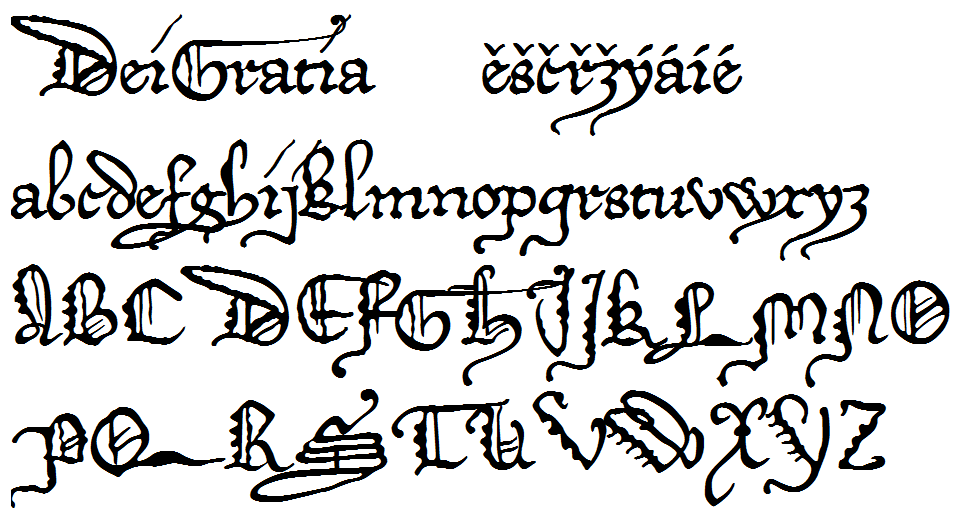 DeiGratia ěščřžýáíé
abcdefghijklmnopqrstuvwxyz
ABCDEFGHIJKLMNO
PQRSTUVWXYZ